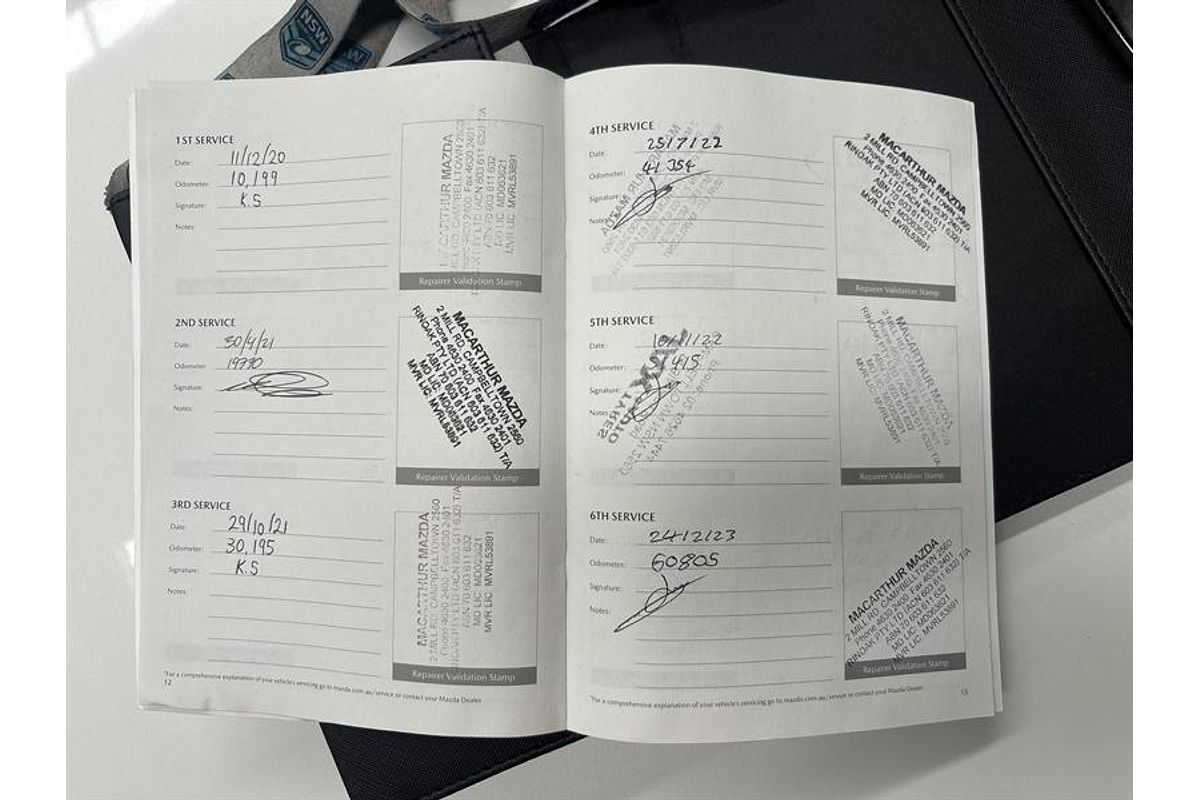 NSW
1ST SERVICE
Date: 11/12/20
Odometer: 10,199
Signature: K.S
Notes:
MACARTHUR MAZDA
MILL RD, CAMPBELLTOWN 2560
Fax 4630 2401
PTY LTD (ACN 603 611 632) T/A
ABN 70 603 611 632
MD LIC: MD063621
MVR LIC: MVRL53891
Repairer Validation Stamp
2ND SERVICE
Date: 30/4/21
Odometer: 19770
Signature:
Notes:
MACARTHUR MAZDA
2 MILL RD, CAMPBELLTOWN 2560
Phone 4630 2400, Fax 4630 2401
RINOAK PTY LTD (ACN 603 611 632) T/A
ABN 70 603 611 632
MD LIC: MD063621
MVR LIC: MVRL53891
Repairer Validation Stamp
3RD SERVICE
Date: 29/10/21
Odometer: 30,195
Signature: K.S
Notes:
MACARTHUR MAZDA
2 MILL RD, CAMPBELLTOWN 2560
Phone 4630 2400, Fax 4630 2401
RINOAK PTY LTD (ACN 603 611 632) T/A
ABN 70 603 611 632
MD LIC: MD063621
MVR LIC: MVRL53891
Repairer Validation Stamp
*For a comprehensive explanation of your vehicle's servicing go to mazda.com.au/service or contact your Mazda Dealer
12
4TH SERVICE
Date: 25/7/22
Odometer: 41354
Signature:
Notes:
MACARTHUR MAZDA
2 MILL RD, CAMPBELLTOWN 2560
Phone 4630 2400, Fax 4630 2401
RINOAK PTY LTD (ACN 603 611 632) T/A
ABN 70 603 611 632
MD LIC: MD063621
MVR LIC: MVRL53891
Repairer Validation Stamp
5TH SERVICE
Date:
Odometer:
Signature:
Notes:
TYRES
AUTO
MACARTHUR MAZDA
Repairer Validation Stamp
6TH SERVICE
Date: 24/2/23
Odometer: 60805
Signature:
Notes:
MACARTHUR MAZDA
2 MILL RD, CAMPBELLTOWN 2560
Phone 4630 2400, Fax 4630 2401
RINOAK PTY LTD (ACN 603 611 632) T/A
ABN 70 603 611 632
MD LIC: MD063621
MVR LIC: MVRL53891
Repairer Validation Stamp
*For a comprehensive explanation of your vehicle's servicing go to mazda.com.au/service or contact your Mazda Dealer
13